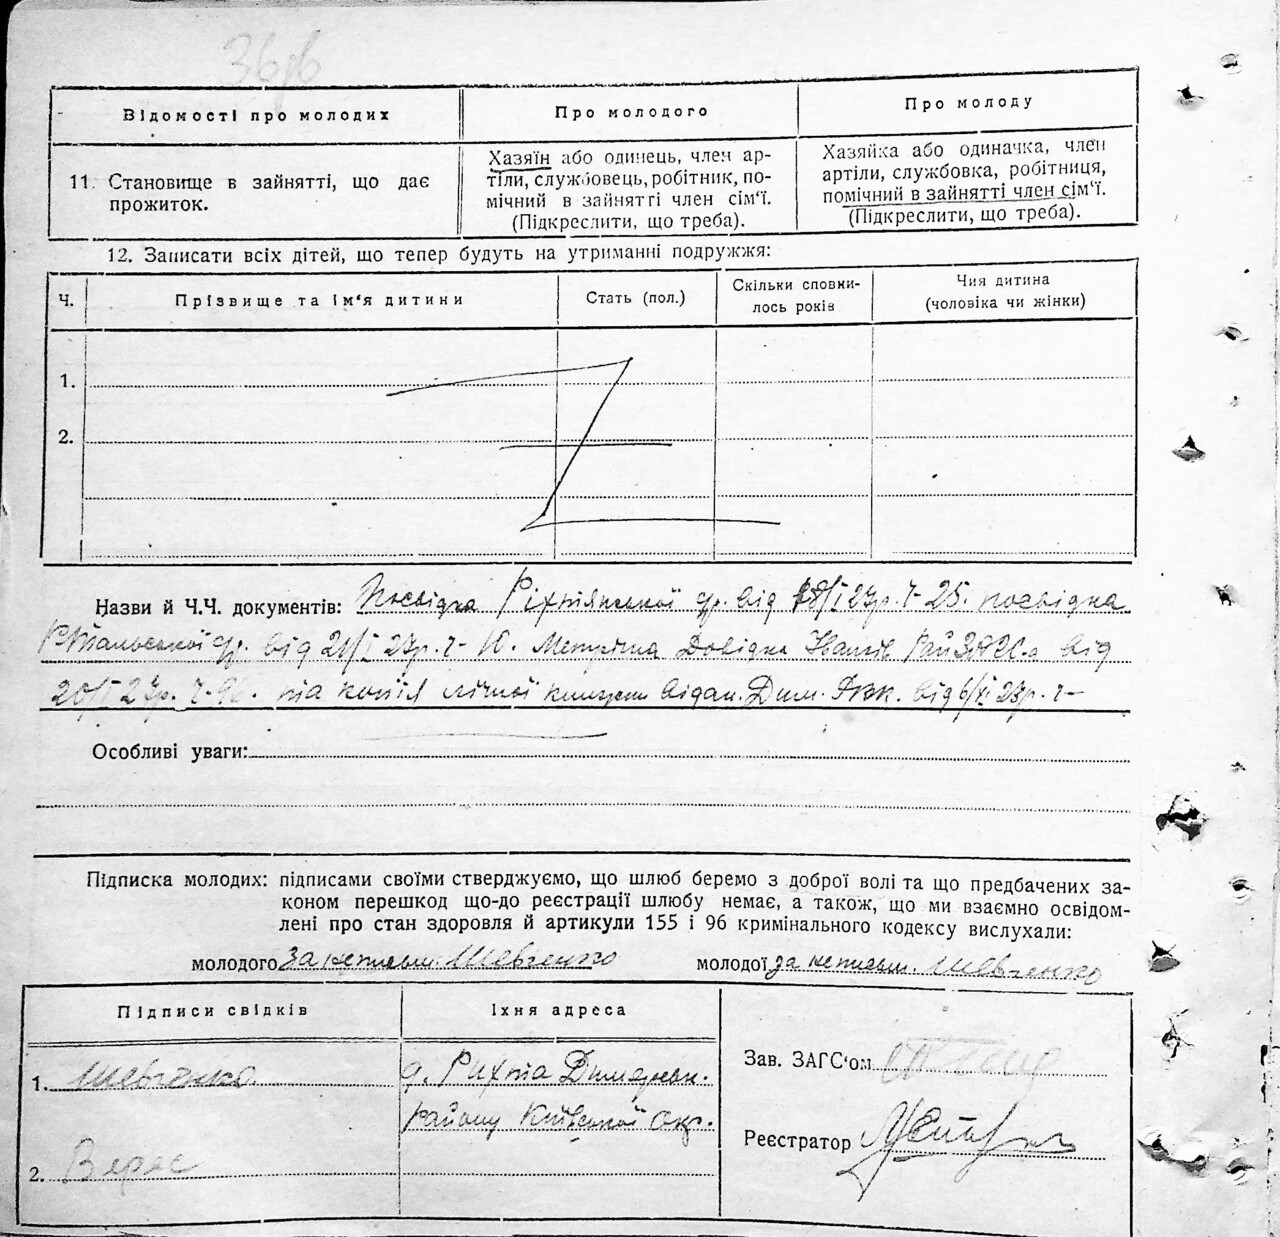 Відомості про молодих
Про молодого
Про молоду
11. Становище в зайнятті, що дає
прожиток.
Хазяїн або одинець, член ар-
тіли, службовець, робітник, по-
мічний в зайнятті член сім'ї.
(Підкреслити, що треба).
Хазяйка або одиначка, член
артіли, службовка, робітниця,
помічний в зайнятті член сім'ї.
(Підкреслити, що треба).
12. Записати всіх дітей, що тепер будуть на утриманні подружжя:
Ч.
Прізвище та ім'я дитини
Стать (пол.)
Скільки сповни-
лось років
Чия дитина
(чоловіка чи жінки)
1.
2.
Назви й Ч.Ч. документів: Посвідка Ріхтянської від 27р. ч- 25. посвідка
від 21/I 27р. ч- 10. Метрична Довідка Рай ЗАГС-а від
20/I 27р. ч- та копія від 6/XI 23р. ч-
Особливі уваги:
Підписка молодих: підписами своїми стверджуємо, що шлюб беремо з доброї волі та що предбачених за-
коном перешкод що-до реєстрації шлюбу немає, а також, що ми взаємно освідом-
лені про стан здоровля й артикули 155 і 96 кримінального кодексу вислухали:
молодого За неписьм. Шевченко
молодої за неписьм. Шевченко
Підписи свідків
Їхня адреса
1. Шевченко
с. Рихта Димерськ.
Району Київської Окр.
2. Верес
Зав. ЗАГС'ом
Реєстратор